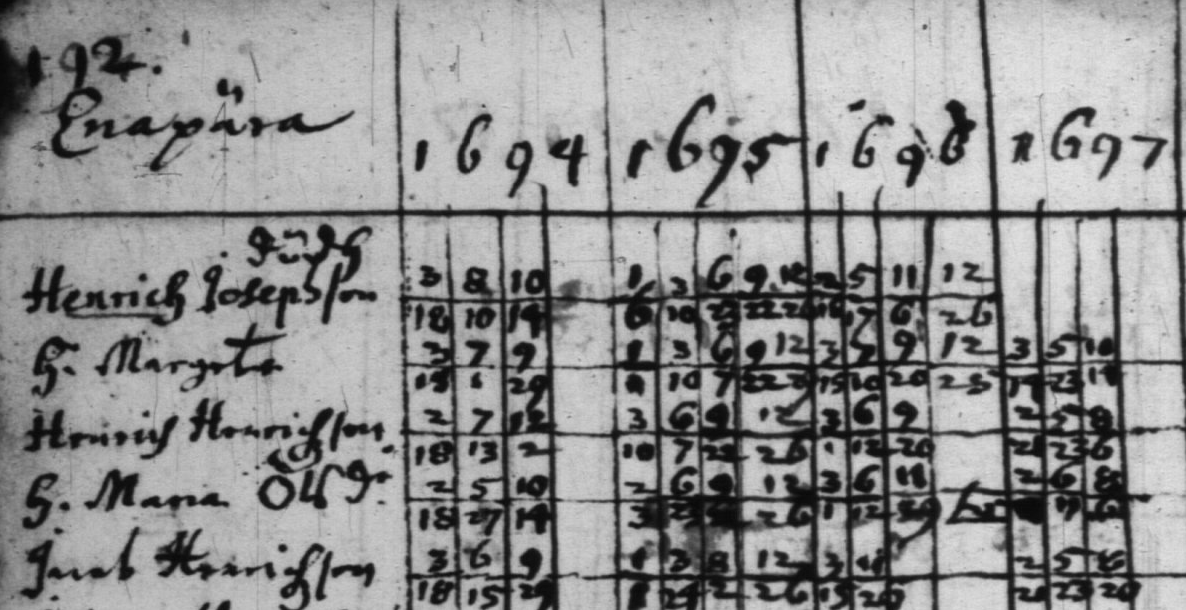 192.
Enapära
1694 1695 1696 1697
död
Henrich Josepsson 3 8 10 1 3 6 9 12 2 5 11 12
18 10 14 6 10 22 22 26 16 17 6 26
H. Margeta 3 7 9 1 3 6 9 12 3 5 9 12 3 5 10
18 1 29 10 7 15 10 20 25 14 23 14
Henrich Henrichsson 2 7 12 3 6 9 12 3 6 9 2 5 8
18 13 2 10 7 22 26 1 12 20 23 6
H. Maria Olsdr 2 5 10 2 6 9 12 3 6 11 2 6 8
18 27 14 3 26 1 12 17 6
Jacob Henrichsson 3 6 9 1 3 8 12 3 11 2 5
18 15 29 2 26 15 20 23 20